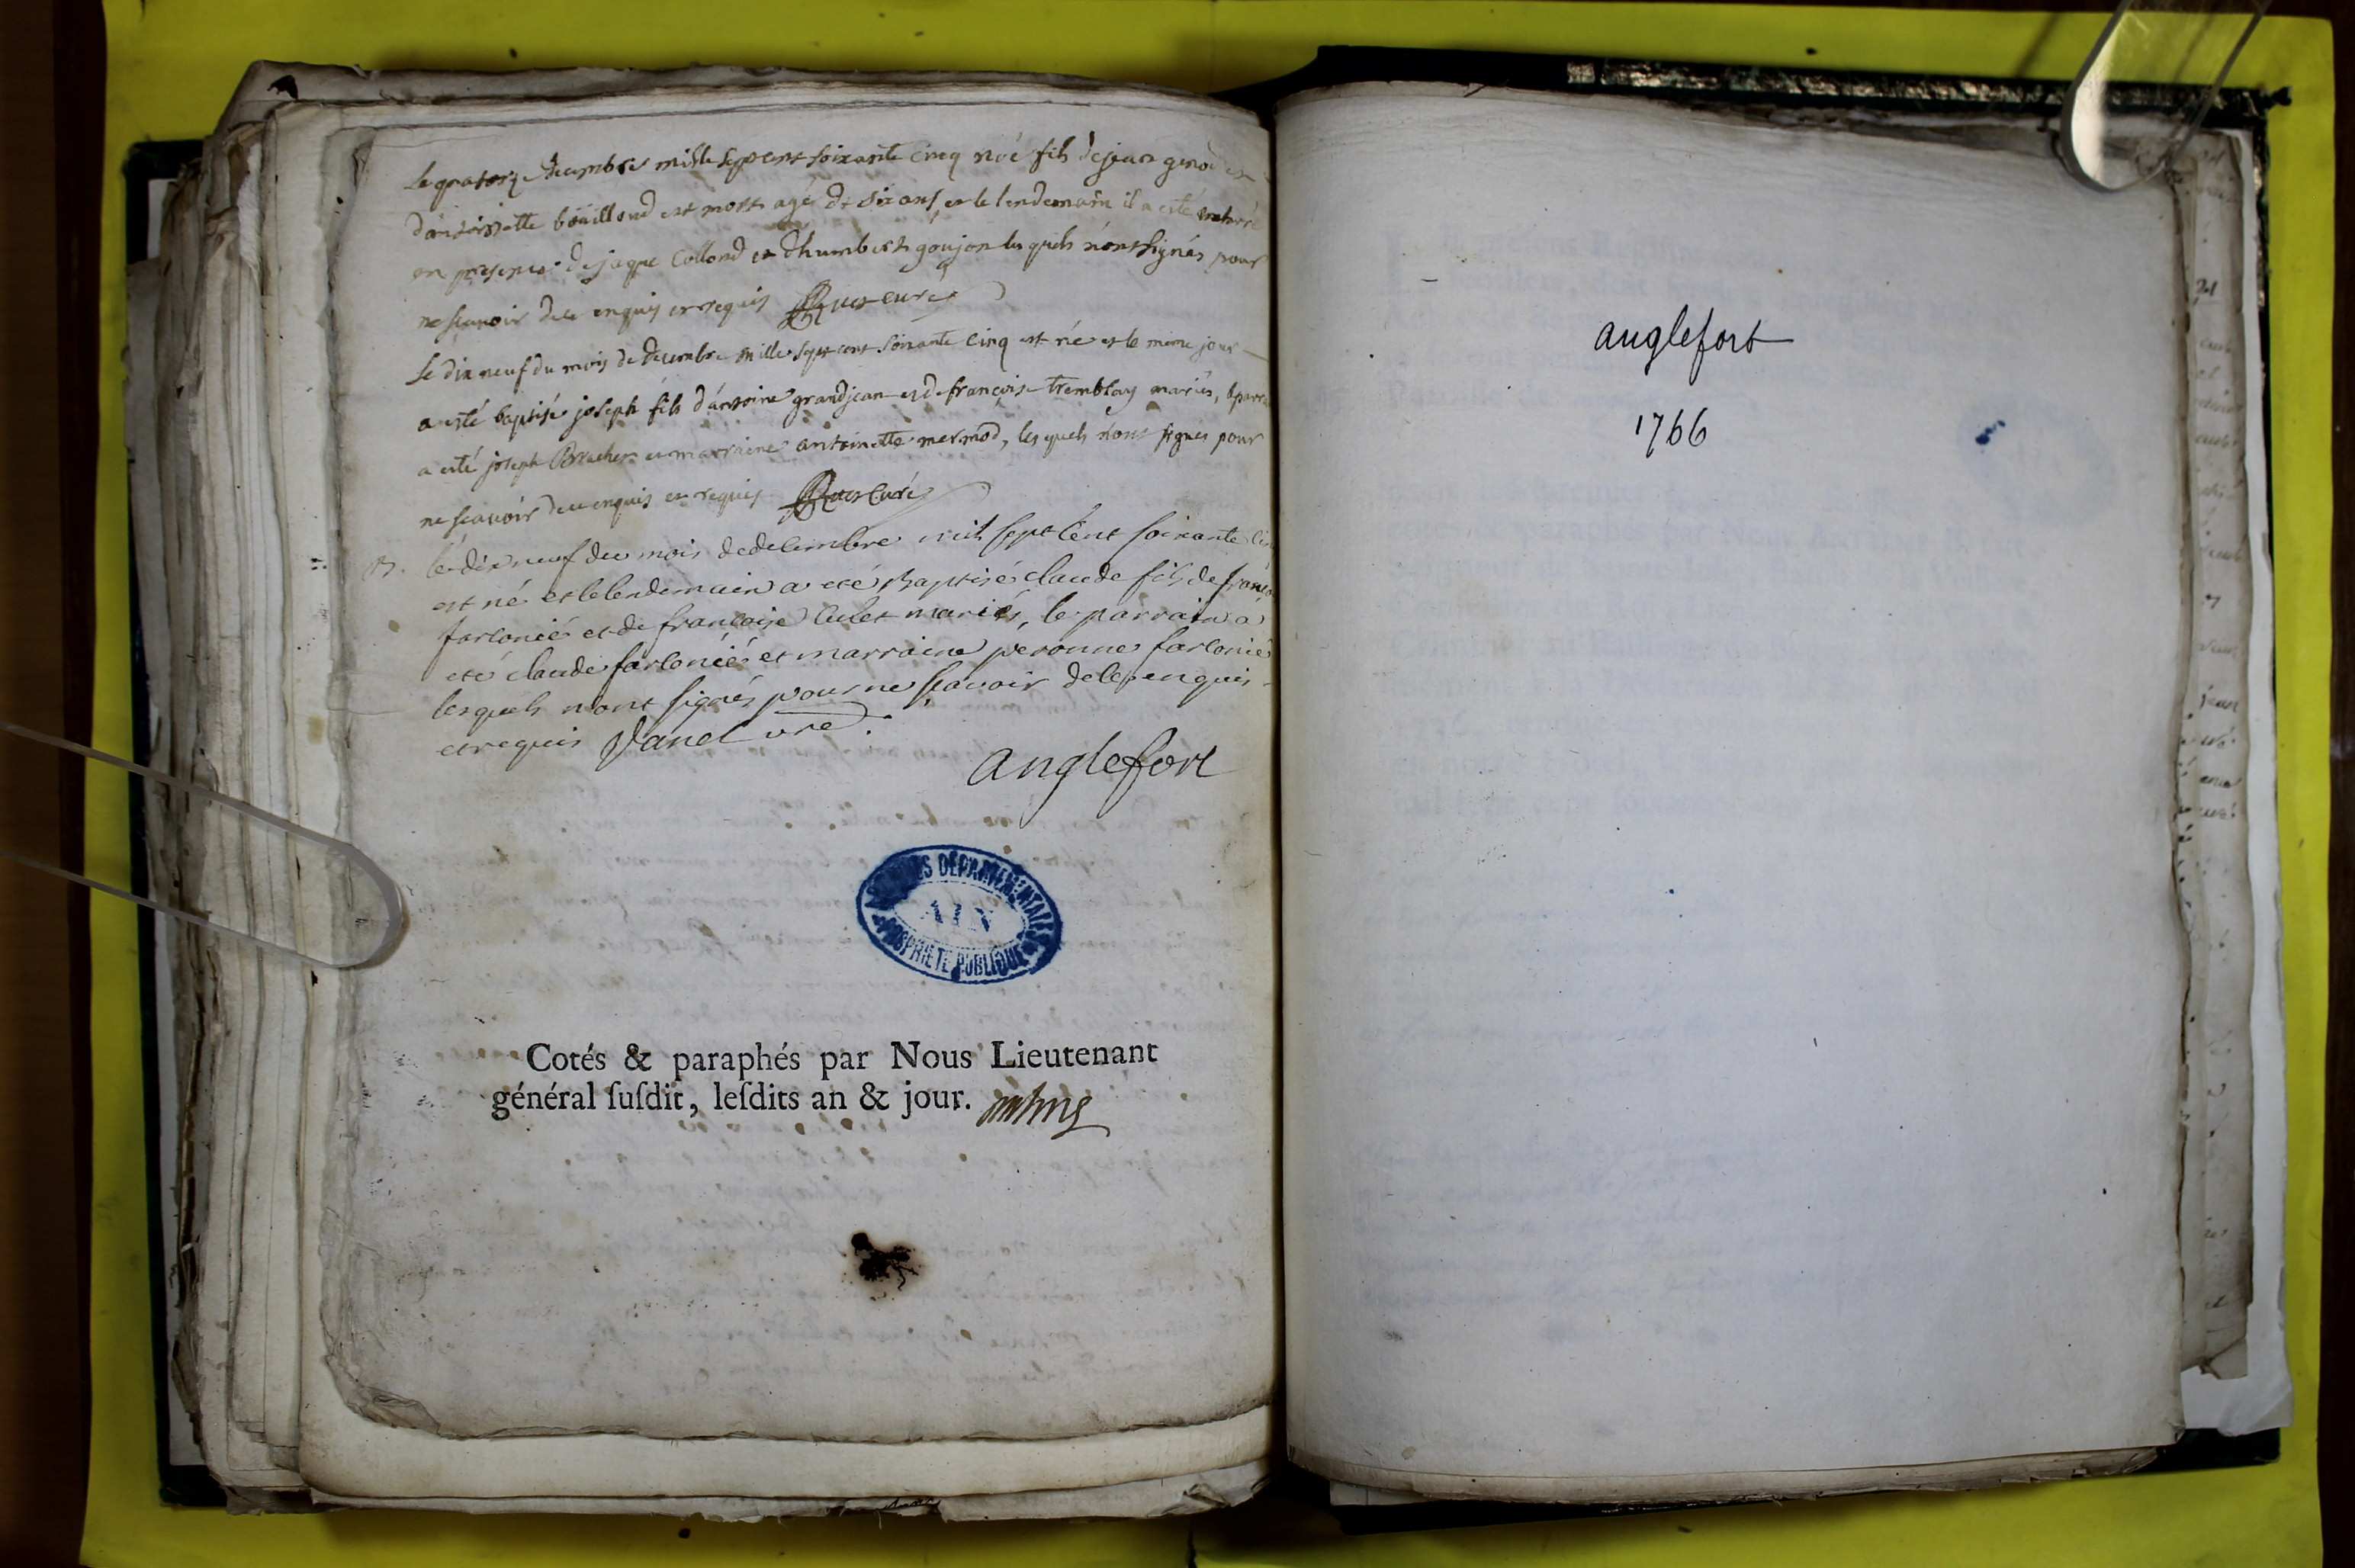 Le quatorze decembre mille sept cent soixante cinq noé fils de jean genod et
d'antoinette boüillond est mort agé de six ans et le lendemain il a esté enterré
en presence de jaque Collond et d'humbert goujon les quels n'ont signés pour
ne sçavoir de ce enquis et requis curé
Le dix neuf du mois de decembre mille sept cent soixante cinq est né et le meme jour
a esté baptisé joseph fils d'antoine grandjean et de françoise tremblay mariés, le parrain
a esté joseph et marraine antoinette mermod, les quels n'ont signés pour
ne sçavoir de ce enquis et requis Curé
le dix neuf du mois de decembre mil sept cent soixante
est né et le lendemain a eté baptisé claude fils de
farlonié et de francoise mariés, le parrain a
eté claude farlonié et marraine peronne farlonié
lesquels n'ont signés pour ne sçavoir de ce enquis
et requis
anglefort
ARCHIVES DÉPARTEMENTALES
AIN
PROPRIÉTÉ PUBLIQUE
Cotés & paraphés par Nous Lieutenant
général ſuſdit, leſdits an & jour.
anglefort
1766